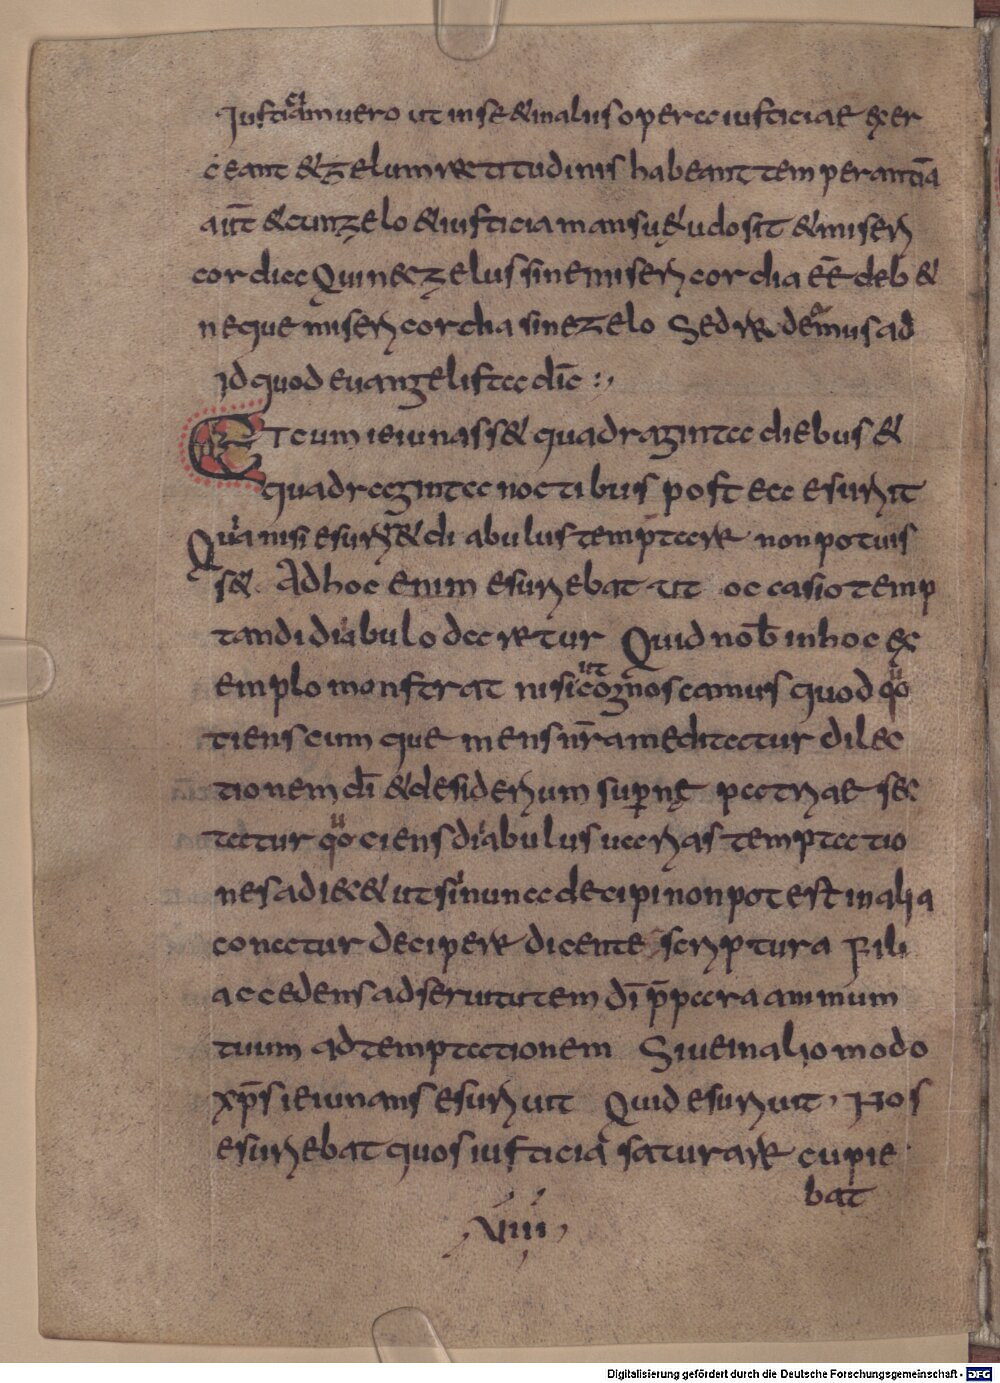 Iusticiam uero ut in se & in alus opera iusticiae exer
ceant & zelum rectitudinis habeant temperantiā
aut̄ & cum zelo & iusticia mansu&udo sit & miseri
cordia Quia nec zelus sine misericordia eē deb&
neque misericordia sine zelo Sed redeamus ad
id quod euangelista dic̄ :,
Et cum ieiunass& quadraginta diebus &
quadraginta noctibus postea esuriit
Quia nisi esurir& diabulus temptare non potuis
s&. Ad hoc enim esuriebat ut occasio temp
tandi diabulo daretur Quid nob̄ in hoc ex
emplo monstrat nisi ut cognoscamus quod quo
tienscumque mens nr̄a meditatur dilec
tionem dī & desiderium supernę patriae sec
tatur quociens diabulus uarias temptatio
nes adiec& ut si in una decipi non potest in alia
conatur decipere dicente scriptura Fili
accedens ad seruitutem dī p̄para animum
tuum ad temptationem Siue in alio modo
xp̄s ieiunans esuriuit Quid esuriuit, Hos
esuriebat quos iusticia saturare cupie
bat
VIIII
Digitalisierung gefördert durch die Deutsche Forschungsgemeinschaft - DFG